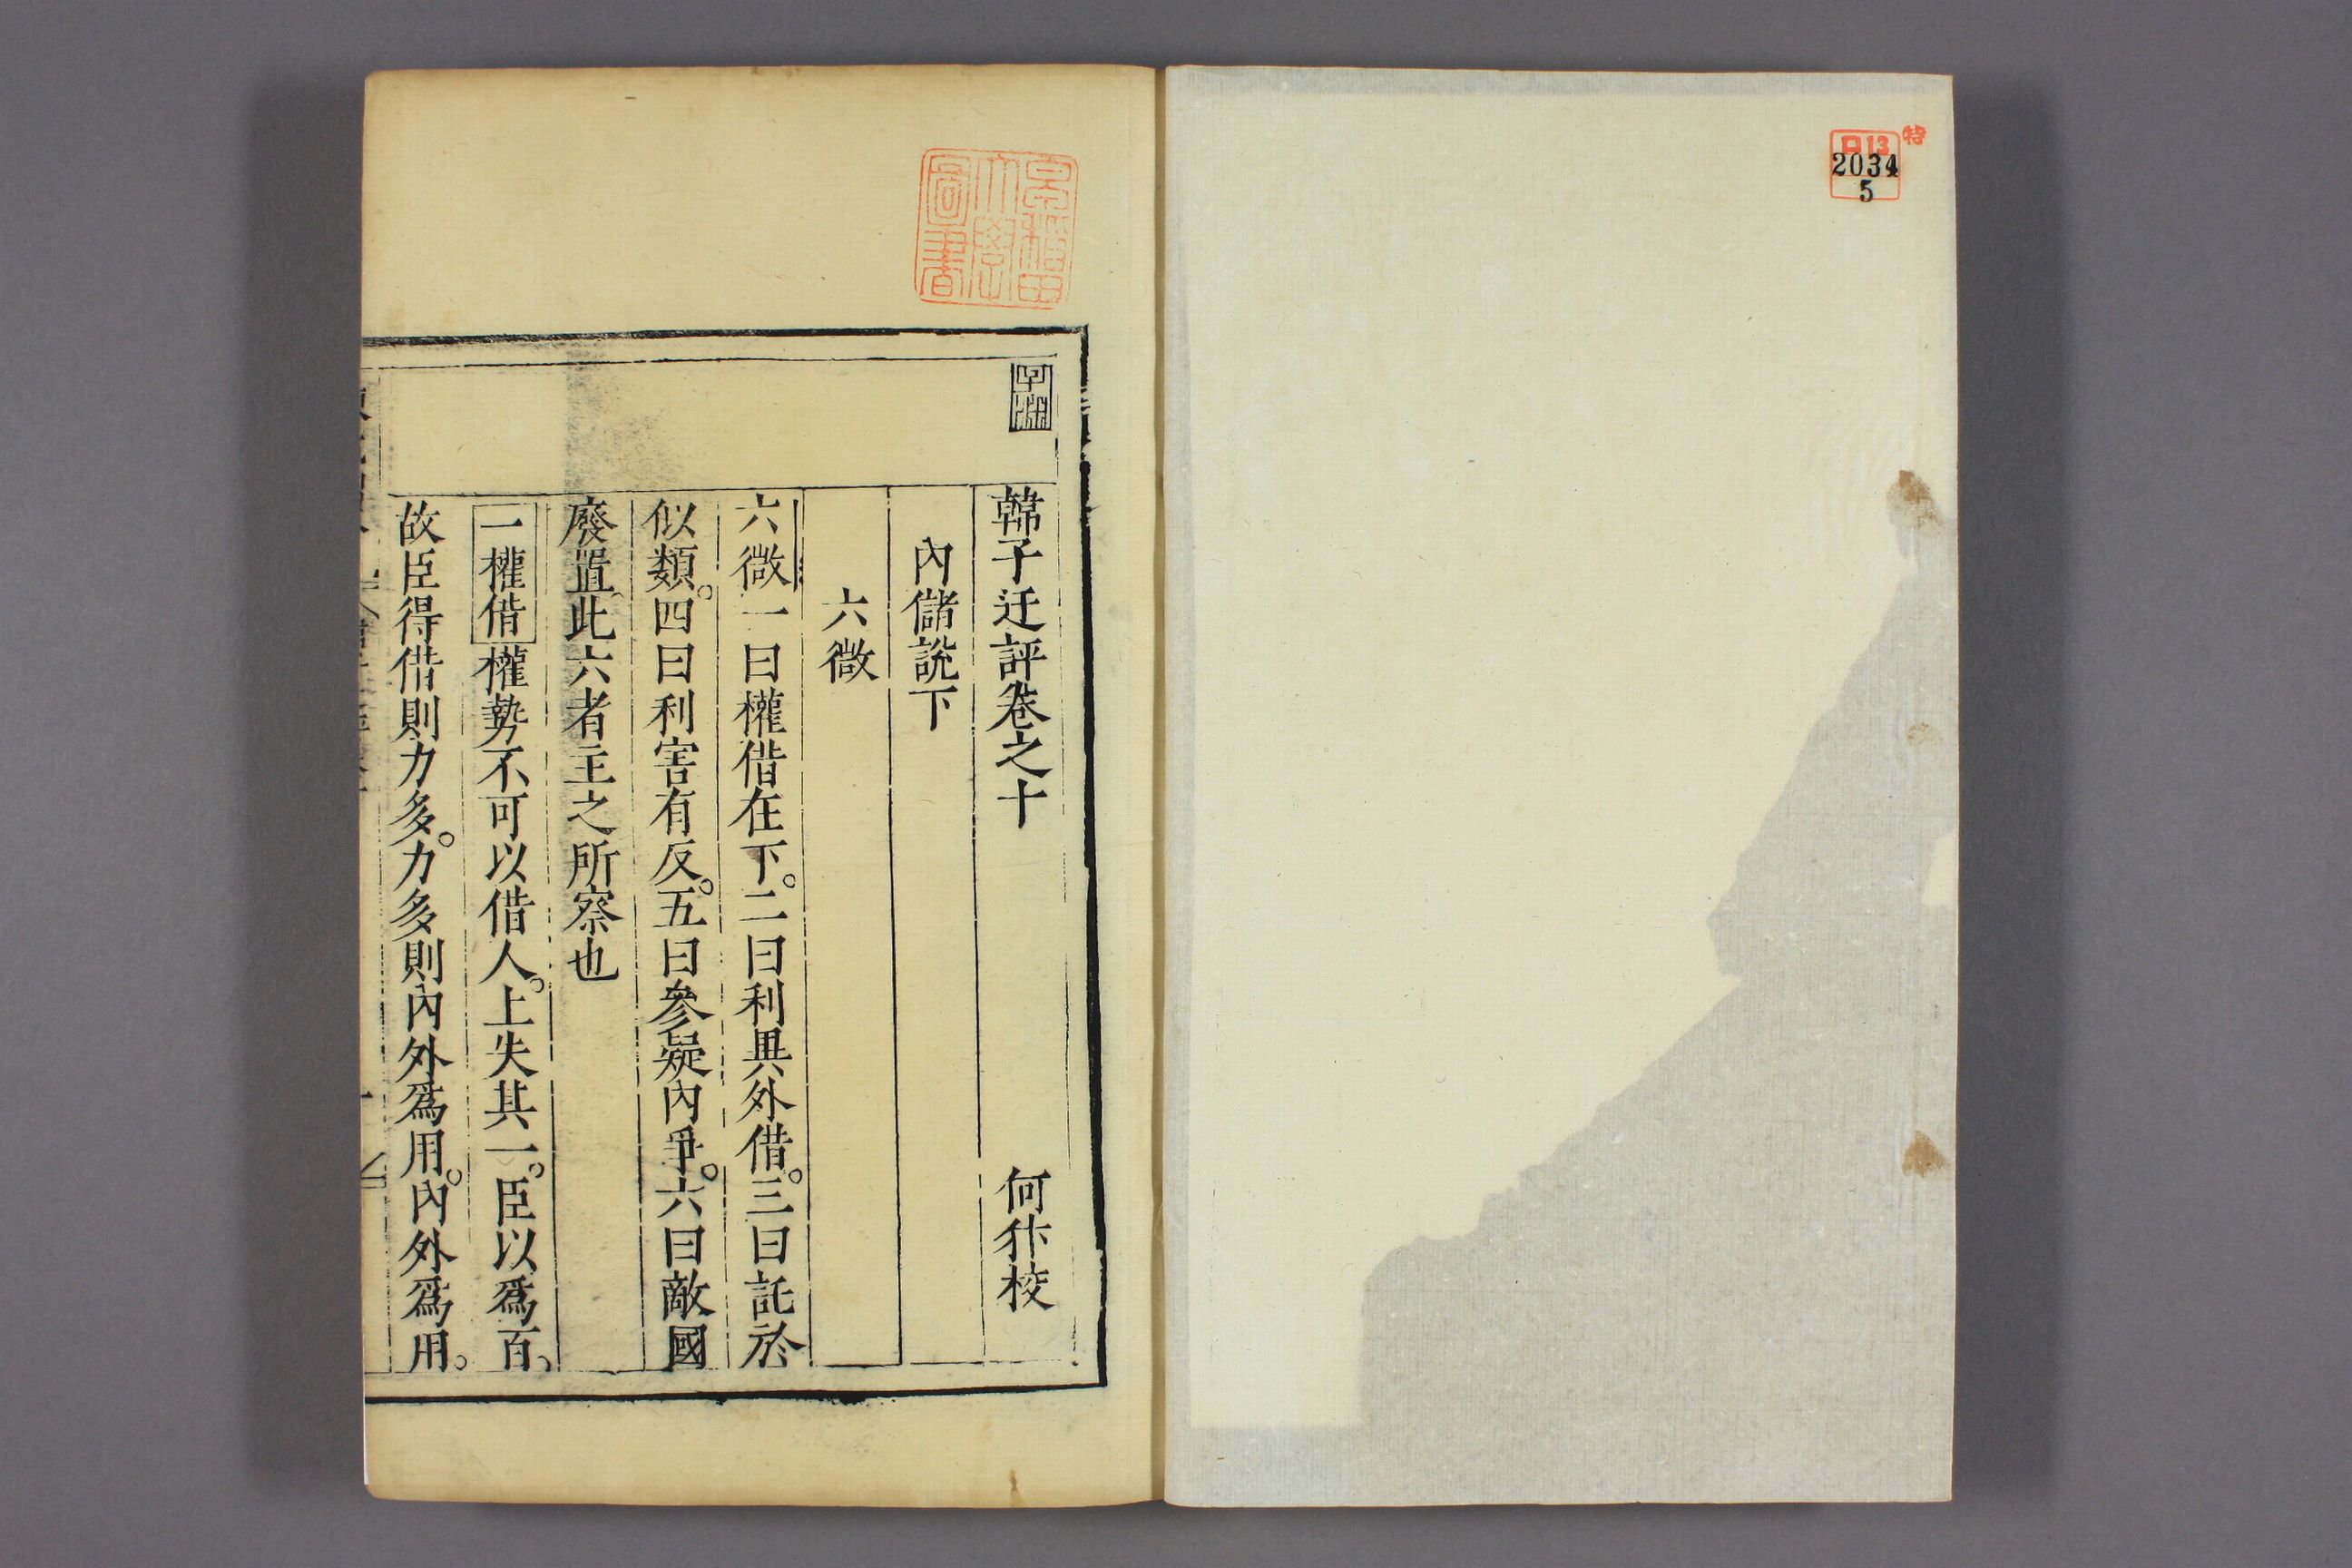 特
口13
2034
5
早稲田
大學
圖書
韓子迂評卷之十
何犿校
內儲說下
六微
六微一曰權借在下。二曰利異外借。三曰託於
似類。四曰利害有反。五曰參疑內爭。六曰敵國
廢置此六者主之所察也
一權借權勢不可以借人。上失其一。臣以爲百。
故臣得借則力多。力多則內外爲用。內外爲用。